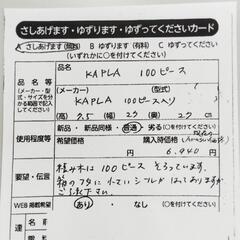 さしあげます・ゆずります・ゆずってくださいカード
A さしあげます(無料) B ゆずります(有料) C ゆずってください
(いずれかに○を付けてください)
品名等
(メーカー・型式・サイズを分かる範囲で記入してください)
(品名)
KAPLA 100ピース
(メーカー) (型式)
KAPLA 100ピース入り
高さ 幅 奥
使用程度等
新品・新品同様・普通・劣る(○を付けてください)
購入時価格
6,940円
要望・伝言
積み木は100ピースそろっています。
箱のフタに
ご了承下さい。
WEB掲載希望
あり・なし(○を付けてください)
連
(氏名)